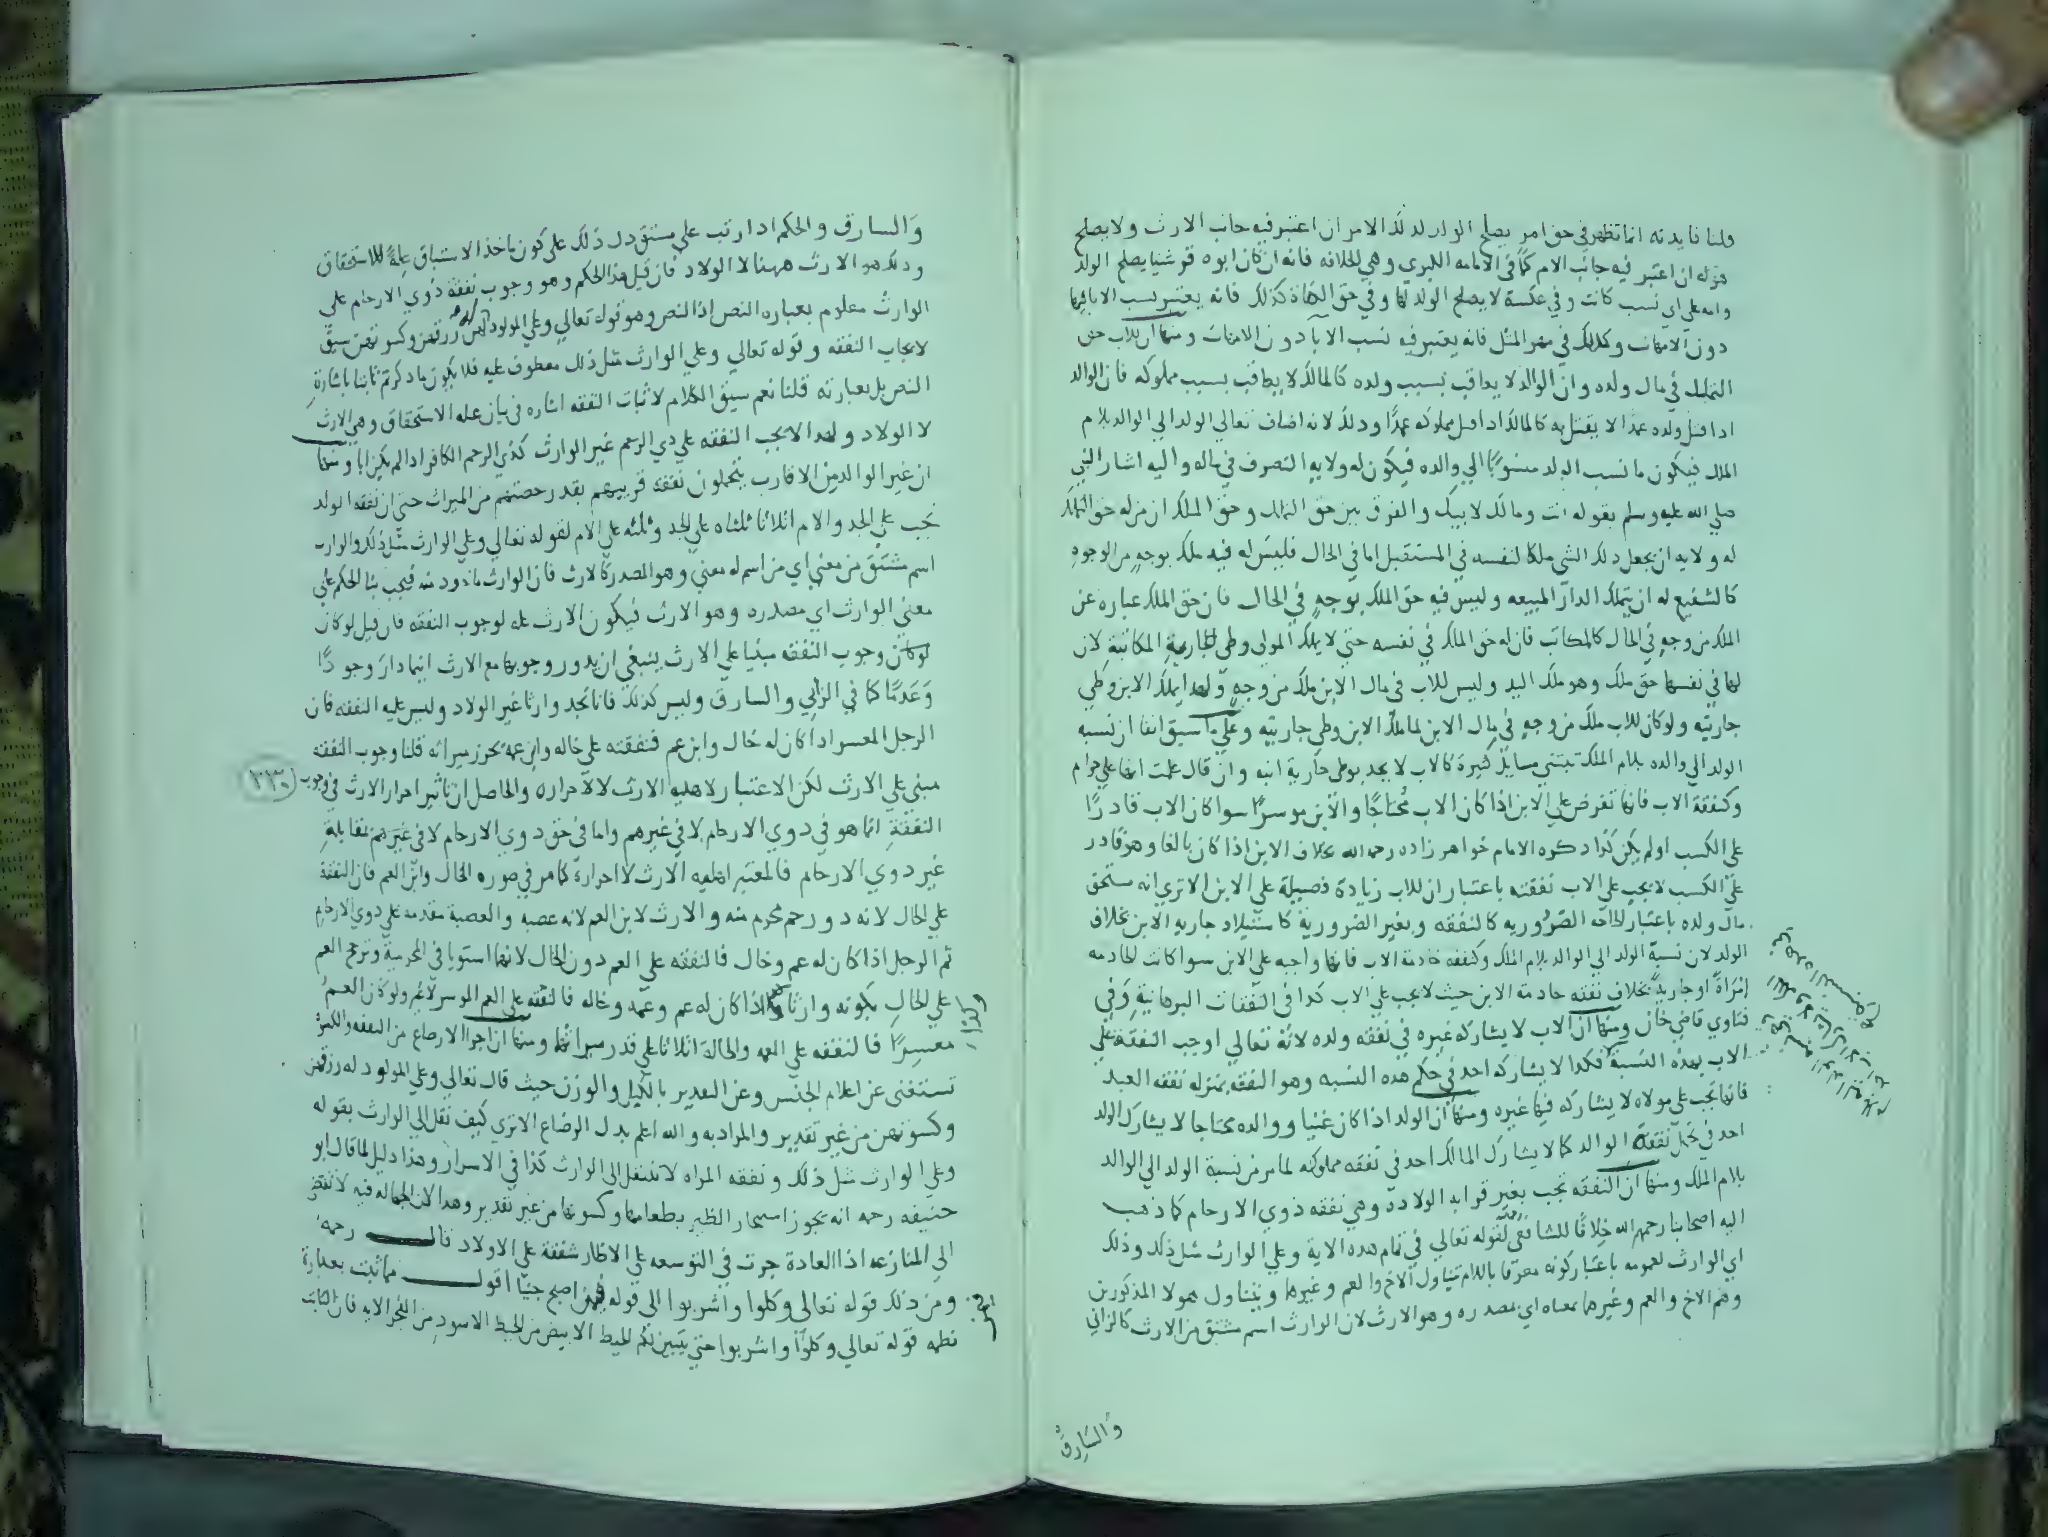 قلنا فايدته انما تظهر في حق امر يصلح الوارد لذلك الامر ان اعتبر فيه جانب الارث ولا يصلح
له ان اعتبر فيه جانب الام كما في الامامه الكبري وهي الخلافه فانه ان كان ابوه قرشيا يصلح الولد
وامه علي اي نسب كانت وفي عكسه لا يصلح الولد لها وفي حق الكفاة كذلك فانه يعتبر نسب الابا فيها
دون الامهات وكذلك في مهر المثل فانه يعتبر فيه نسب الآبا دون الامهات ومنها ان للاب حق
التملك في مال ولده وان الوالد لا يعاقب بسبب ولده كالمالك لا يعاقب بسبب مملوكه فان الوالد
اذا قتل ولده عمدا لا يقتل به كالمالك اذا قتل مملوكه عمدًا وذلك لانه اضاف تعالي الولد الي الوالد بلام
الملك فيكون ما نسب الولد منسوبًا الي والده فيكون له ولايه التصرف في ماله واليه اشار النبي
صلي الله عليه وسلم بقوله انت ومالك لابيك والفرق بين حق التملك وحق الملك ان من له حق التملك
له ولايه ان يجعل ذلك الشي ملكا لنفسه في المستقبل اما في الحال فليس له فيه ملك بوجهٍ من الوجوه
كالشفيع له ان يتملك الدار المبيعه وليس فيه حق الملك بوجهٍ في الحال فان حق الملك عباره عن
الملك من وجهٍ في الحال كالمكاتب فان له حق الملك في نفسه حتي لا يملك المولي وطي الجارية المكاتبة لان
لها في نفسها حق ملك وهو ملك اليد وليس للاب في مال الابن ملك من وجهٍ ولهذا يملك الابن وطي
جاريته ولو كان للاب ملك من وجهٍ في مال الابن لما ملك الابن وطي جاريته وعلي ما سبق انفا ان نسبه
الولد الي والده بلام الملك تبتني مسايل كثيرة كالاب لا يحد بوطي جارية ابنه وان قال علمت انها علي حرام
وكنفقة الاب فانها تفرض علي الابن اذا كان الاب مُحتاجًا والابن موسرًا سوا كان الاب قادرًا
علي الكسب او لم يكن كذا ذكره الامام خواهر زاده رحمه الله بخلاف الابن اذا كان بالغا وهو قادر
علي الكسب لا يجب علي الاب نفقته باعتبار ان للاب زيادة فضيلة علي الابن الا تري انه يستحق
مال ولده باعتبار الحاجه الضروريه كالنفقه وبغير الضرورية كاستيلاد جاريه الابن بخلاف
الولد لان نسبة الولد الي الوالد بلام الملك وكنفقه خادمة الاب فانها واجبه علي الابن سوا كانت الخادمه
امْرَاةً او جاريةً بخلاف نفقه خادمة الابن حيث لا يجب علي الاب كذا في النفقات البرهانية وَفي
فتاوي قاضي خان ومنها ان الاب لا يشاركه غيره في نفقه ولده لانه تعالي اوجب النفقة علي
الاب بهذه النسبة فكذا لا يشاركه احد في حكم هذه النسبه وهو النفقه بمنزله نفقه العبد
فانها تجب علي مولاه لا يشاركه فيها غيره ومنها ان الولد اذا كان غنيا ووالده محتاجا لا يشارك الولد
احد في تحمل نفقة الوالد كما لا يشارك المالك احد في نفقه مملوكه لما مر من نسبة الولد الي الوالد
بلام الملك ومنها ان النفقه تجب بغير قرابه الولادة وهي نفقه ذوي الارحام كما ذهب
اليه اصحابنا رحمهم الله خِلافًا للشافعي رحمه لقوله تعالي في تمام هذه الاية وعلي الوارث مثل ذلك وذلك
اي الوارث لعمومه باعتبار كونه معرفا باللام تتناول الاخ والعم وغيرها ويتناول هولا المذكورين
وهم الاخ والعم وغيرها بمعناه اي مصدره وهو الارث لان الوارث اسم مشتق من الارث كالزاني
وَالسَّارِق
وَالسارق والحكم اذا رتب علي مشتق دل ذلك علي كون ماخذ الاشتقاق عِلةً للاستحقاق
وذلك هو الارث ههنا لا الولاد فان قيل هذا الحكم وهو وجوب نفقة ذوي الارحام علي
الوارث معلوم بعباره النص اذ النص وهو قوله تعالي وعلي المولود له رزقهن وكسوتهن سيق
لايجاب النفقه وقوله تعالي وعلي الوارث مثل ذلك معطوف عليه فلا يكون ما ذكرتم ثابتا باشارة
النص بل بعبارته قلنا نعم سيق الكلام لاثبات النفقه اشاره في بيان عله الاستحقاق وهي الارث
لا الولاد ولهذا لا يجب النفقه علي ذي الرحم غير الوارث كذي الرحم الكافر اذا لم يكن ابا ومنها
ان غير الوالد من الاقارب يتحملون نفقه قريبهم بقدر حصتهم من الميراث حتي ان نفقه الولد
تجب علي الجد والام اثلاثا ثلثاه علي الجد وثلثه علي الام لقوله تعالي وعلي الوارث مثل ذلك والوارث
اسم مشتق من معني اي من اسم له معني وهو المصدر كالارث فان الوارث ماخوذ منه فيجب بنا الحكم علي
معني الوارث اي مصدره وهو الارث فيكون الارث عله لوجوب النفقه فان قيل لو كان
لو كان وجوب النفقه مبنيا علي الارث ينبغي ان يدور وجوبها مع الارث اينما دارَ وجودًا
وَعَدمًا كما في الزاني والسارق وليس كذلك فانا نجد وارثا غير الولاد وليس عليه النفقه فان
الرجل المعسر اذا كان له خال وابن عم فنفقته علي خاله وابن عمه يحرز ميراثه قلنا وجوب النفقه
مبني علي الارث لكن الاعتبار لاهلية الارث لا لاحرازه والحاصل ان تاثير احراز الارث في وجوب
٢٣٠
النفقة انما هو في ذوي الارحام لا في غيرهم واما في حق ذوي الارحام لا في غيرهم بمقابلة
غير ذوي الارحام فالمعتبر اهلية الارث لا احرازهُ كما مر في صوره الخال وابن العم فان النفقة
علي الخال لانه ذو رحم محرم منه والارث لابن العم لانه عصبه والعصبة مقدمه علي ذوي الارحام
ثم الرجل اذا كان له عم وخال فالنفقه علي العم دون الخال لانهما استويا في المحرمية وترجح العم
علي الخال بكونه وارثا وكذا اذا كان له عم وعمه وخاله فالنفقه علي العم الموسر لا غير ولو كان العم
وكذا
معسِرًا فالنفقه علي العمه والخالة اثلاثا علي قدر ميراثهما ومنها ان اجرا الارضاع من النفقه والكسوة
تستغني عن اعلام الجنس وعن التقدير بالكيل والوزن حيث قال تعالي وعلي المولود له رزقهن
وكسوتهن من غير تقدير والمراد به والله اعلم بدل الرضاع الا تري كيف نقل الي الوارث بقوله
وعلي الوارث مثل ذلك ونفقه المراه لا تنتقل الي الوارث كذا في الاسرار وهذا دليل لما قال ابو
حنيفه رحمه انه يجوز استيجار الظير بطعامها وكسوتها من غير تقدير وهذا لان الجهاله فيه لا تفضي
الي المنازعه اذ العادة جرت في التوسعه علي الاظار شفقة علي الاولاد قال رحمه
ومن ذلك قوله تعالي وكلوا واشربوا الي قوله اصبح جنبا اقول ما ثبت بعبارة
نظمه قوله تعالي وكلوا واشربوا حتي يتبين لكم الخيط الابيض من الخيط الاسود من الفجر الايه فان الثابت